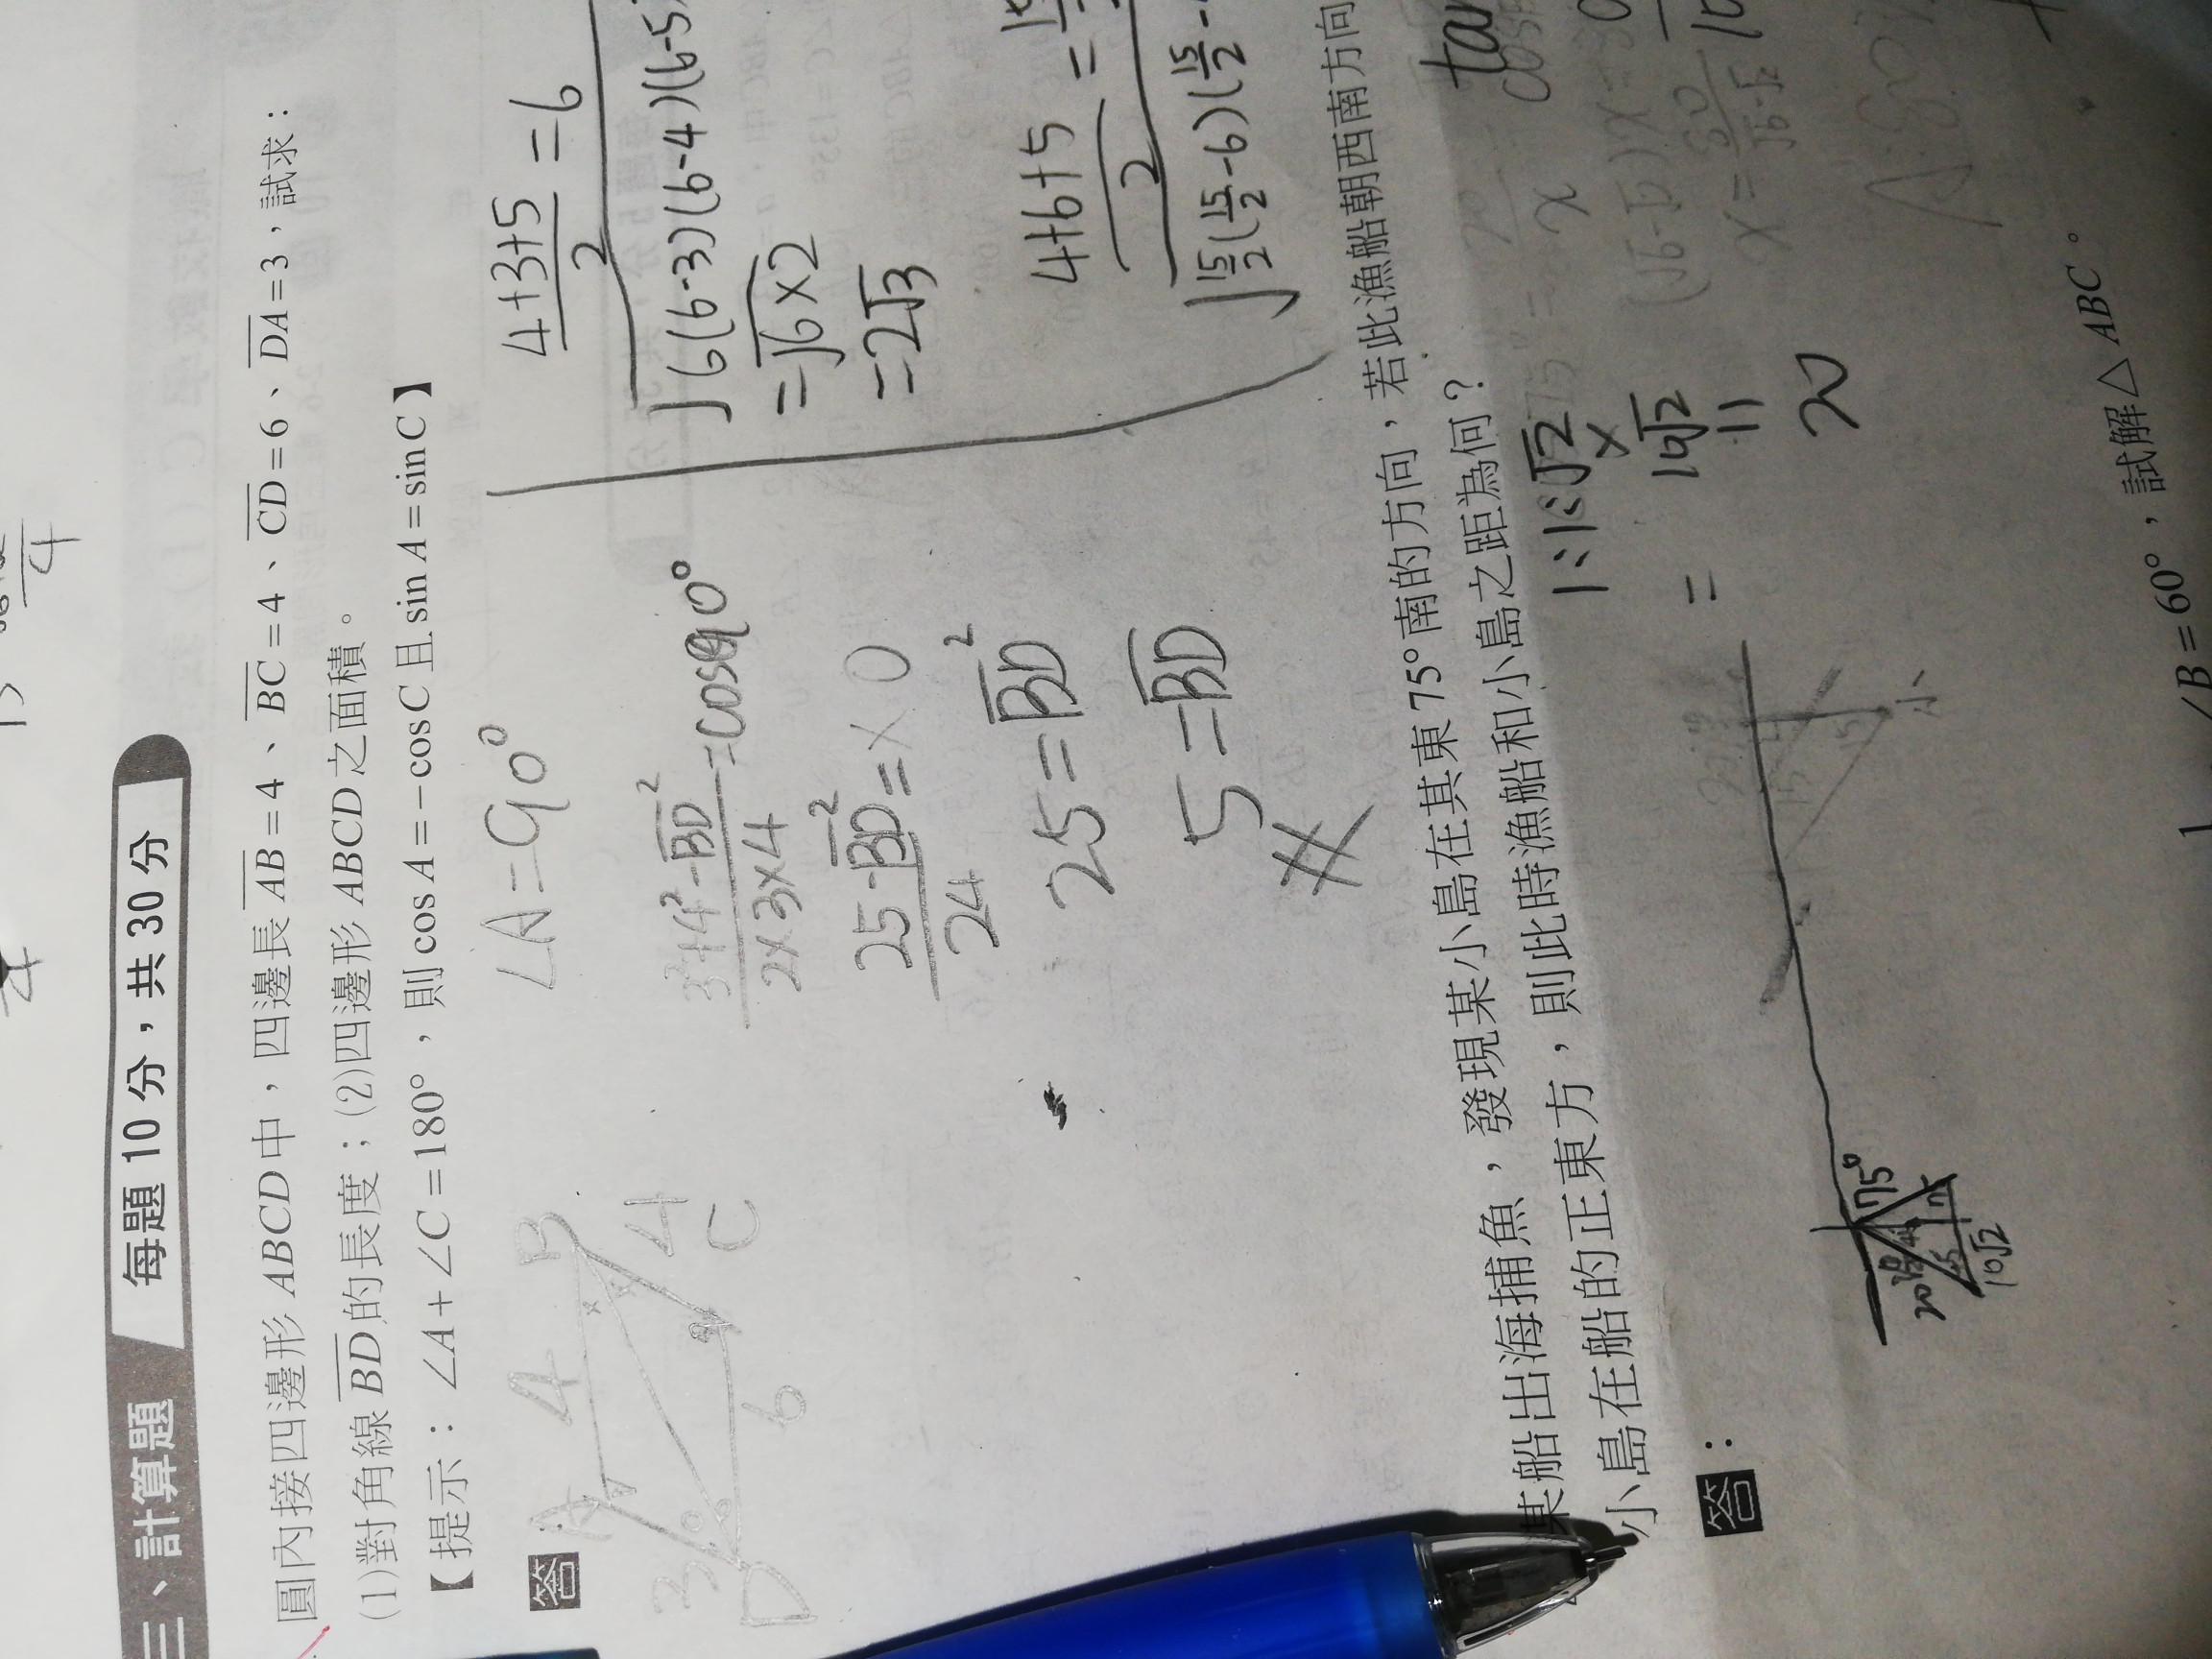 三、計算題 每題 10 分，共 30 分
圓內接四邊形 ABCD 中，四邊長 AB=4、BC=4、CD=6、DA=3，試求：
(1)對角線 BD 的長度；(2)四邊形 ABCD 之面積。
【提示：∠A+∠C=180°，則 cos A=−cos C 且 sin A=sin C】
答
A 4 B
3 4
D 6 C
∠A=90°
3²+4²-BD²/2×3×4=cos90°
25-BD²/24=×0
25=BD²
5=BD
4+3+5/2=6
√6(6-3)(6-4)(6-5)
=√6×2
=2√3
4+6+5/2=
√15/2(15/2-6)(15/2-
某船出海捕魚，發現某小島在其東 75° 南的方向，若此漁船朝西南方向
小島在船的正東方，則此時漁船和小島之距為何？
答：
75°
10√2
小
1:1:√2
×
= 10√2
=
20
tan
x
∠B=60°，試解△ABC。